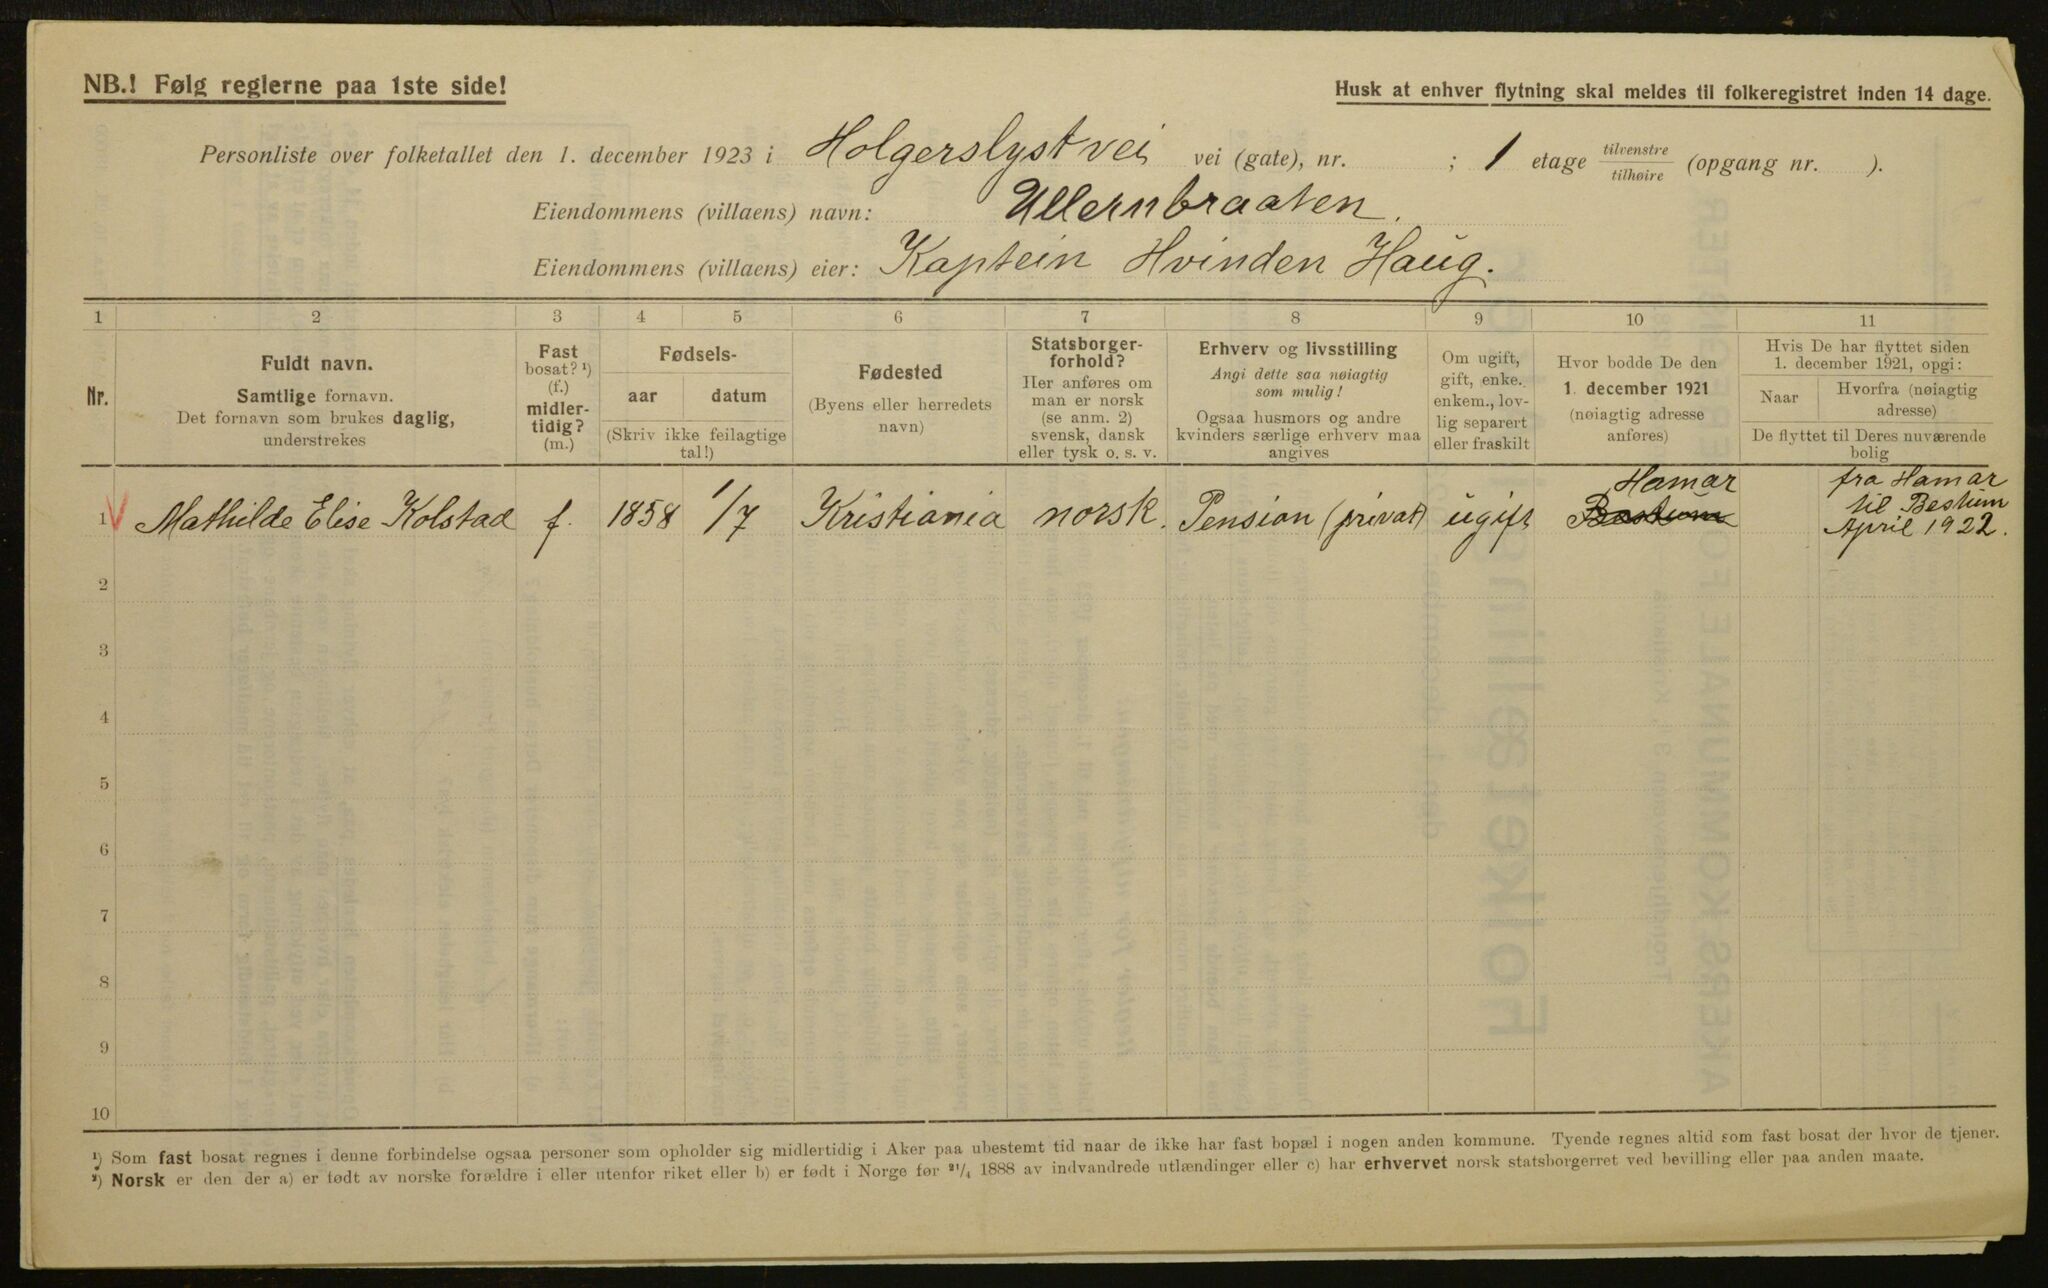 NB.! Følg reglerne paa 1ste side!
Husk at enhver flytning skal meldes til folkeregistret inden 14 dage.
Personliste over folketallet den 1. december 1923 i Holgerslystvei vei (gate), nr. ; 1 etage tilvenstre tilhøire (opgang nr. ).
Eiendommens (villaens) navn: Ullernbraaten.
Eiendommens (villaens) eier: Kaptein Hvinden Haug.
1 2 3 4 5 6 7 8 9 10 11
Nr.
Fuldt navn.
Samtlige fornavn.
Det fornavn som brukes daglig,
understrekes
Fast
bosat? ¹)
(f.)
midler-
tidig?
(m.)
Fødsels-
aar datum
(Skriv ikke feilagtige
tal!)
Fødested
(Byens eller herredets
navn)
Statsborger-
forhold?
Her anføres om
man er norsk
(se anm. 2)
svensk, dansk
eller tysk o. s. v.
Erhverv og livsstilling
Angi dette saa nøiagtig
som mulig!
Ogsaa husmors og andre
kvinders særlige erhverv maa
angives
Om ugift,
gift, enke.
enkem., lov-
lig separert
eller fraskilt
Hvor bodde De den
1. december 1921
(nøiagtig adresse
anføres)
Hvis De har flyttet siden
1. december 1921, opgi:
Naar
Hvorfra (nøiagtig
adresse)
De flyttet til Deres nuværende
bolig
1 Mathilde Elise Kolstad f. 1858 1/7 Kristiania norsk. Pension (privat) ugift Hamar Bestum fra Hamar
til Bestum
April 1922.
2
3
4
5
6
7
8
9
10
¹) Som fast bosat regnes i denne forbindelse ogsaa personer som opholder sig midlertidig i Aker paa ubestemt tid naar de ikke har fast bopæl i nogen anden kommune. Tyende regnes altid som fast bosat der hvor de tjener.
²) Norsk er den der a) er født av norske forældre i eller utenfor riket eller b) er født i Norge før ²¹/₄ 1888 av indvandrede utlændinger eller c) har erhvervet norsk statsborgerret ved bevilling eller paa anden maate.